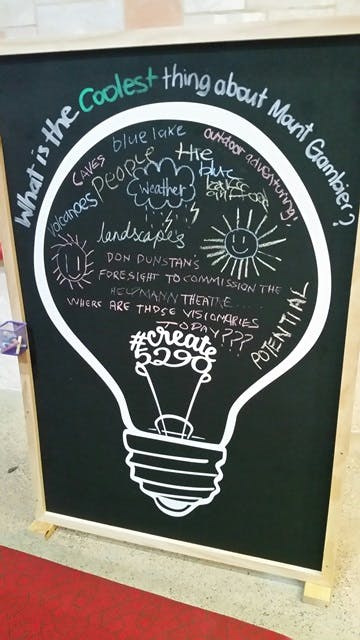 What is the Coolest thing about Mount Gambier?
blue lake
outdoor adventuring!
CAVES
PEOPLE
the
blue
lake
Volcanoes
Weather
landscapes
DON DUNSTAN'S
FORESIGHT TO COMMISSION THE
HELPMANN THEATRE.....
WHERE ARE THOSE VISIONARIES
TODAY???
POTENTIAL
#create
5290